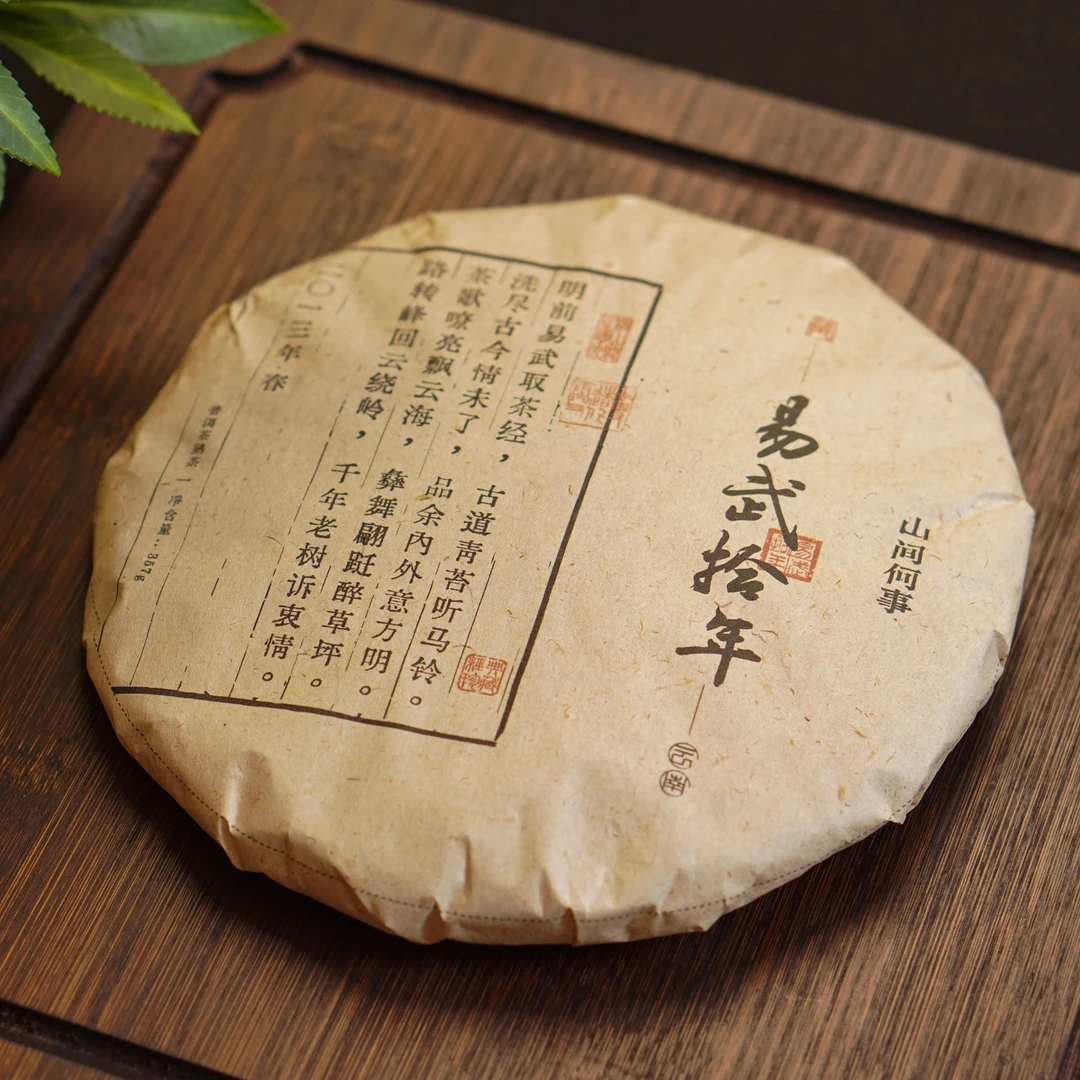 山间何事
易武拾年
云南
明前易武取茶经，古道青苔听马铃。
洗尽古今情未了，品余内外意方明。
茶歌嘹亮飘云海，彝舞翩跹醉草坪。
路转峰回云绕岭，千年老树诉衷情。
二〇一三年 春
普洱茶熟茶 一 净含量：357g
典藏
經珍